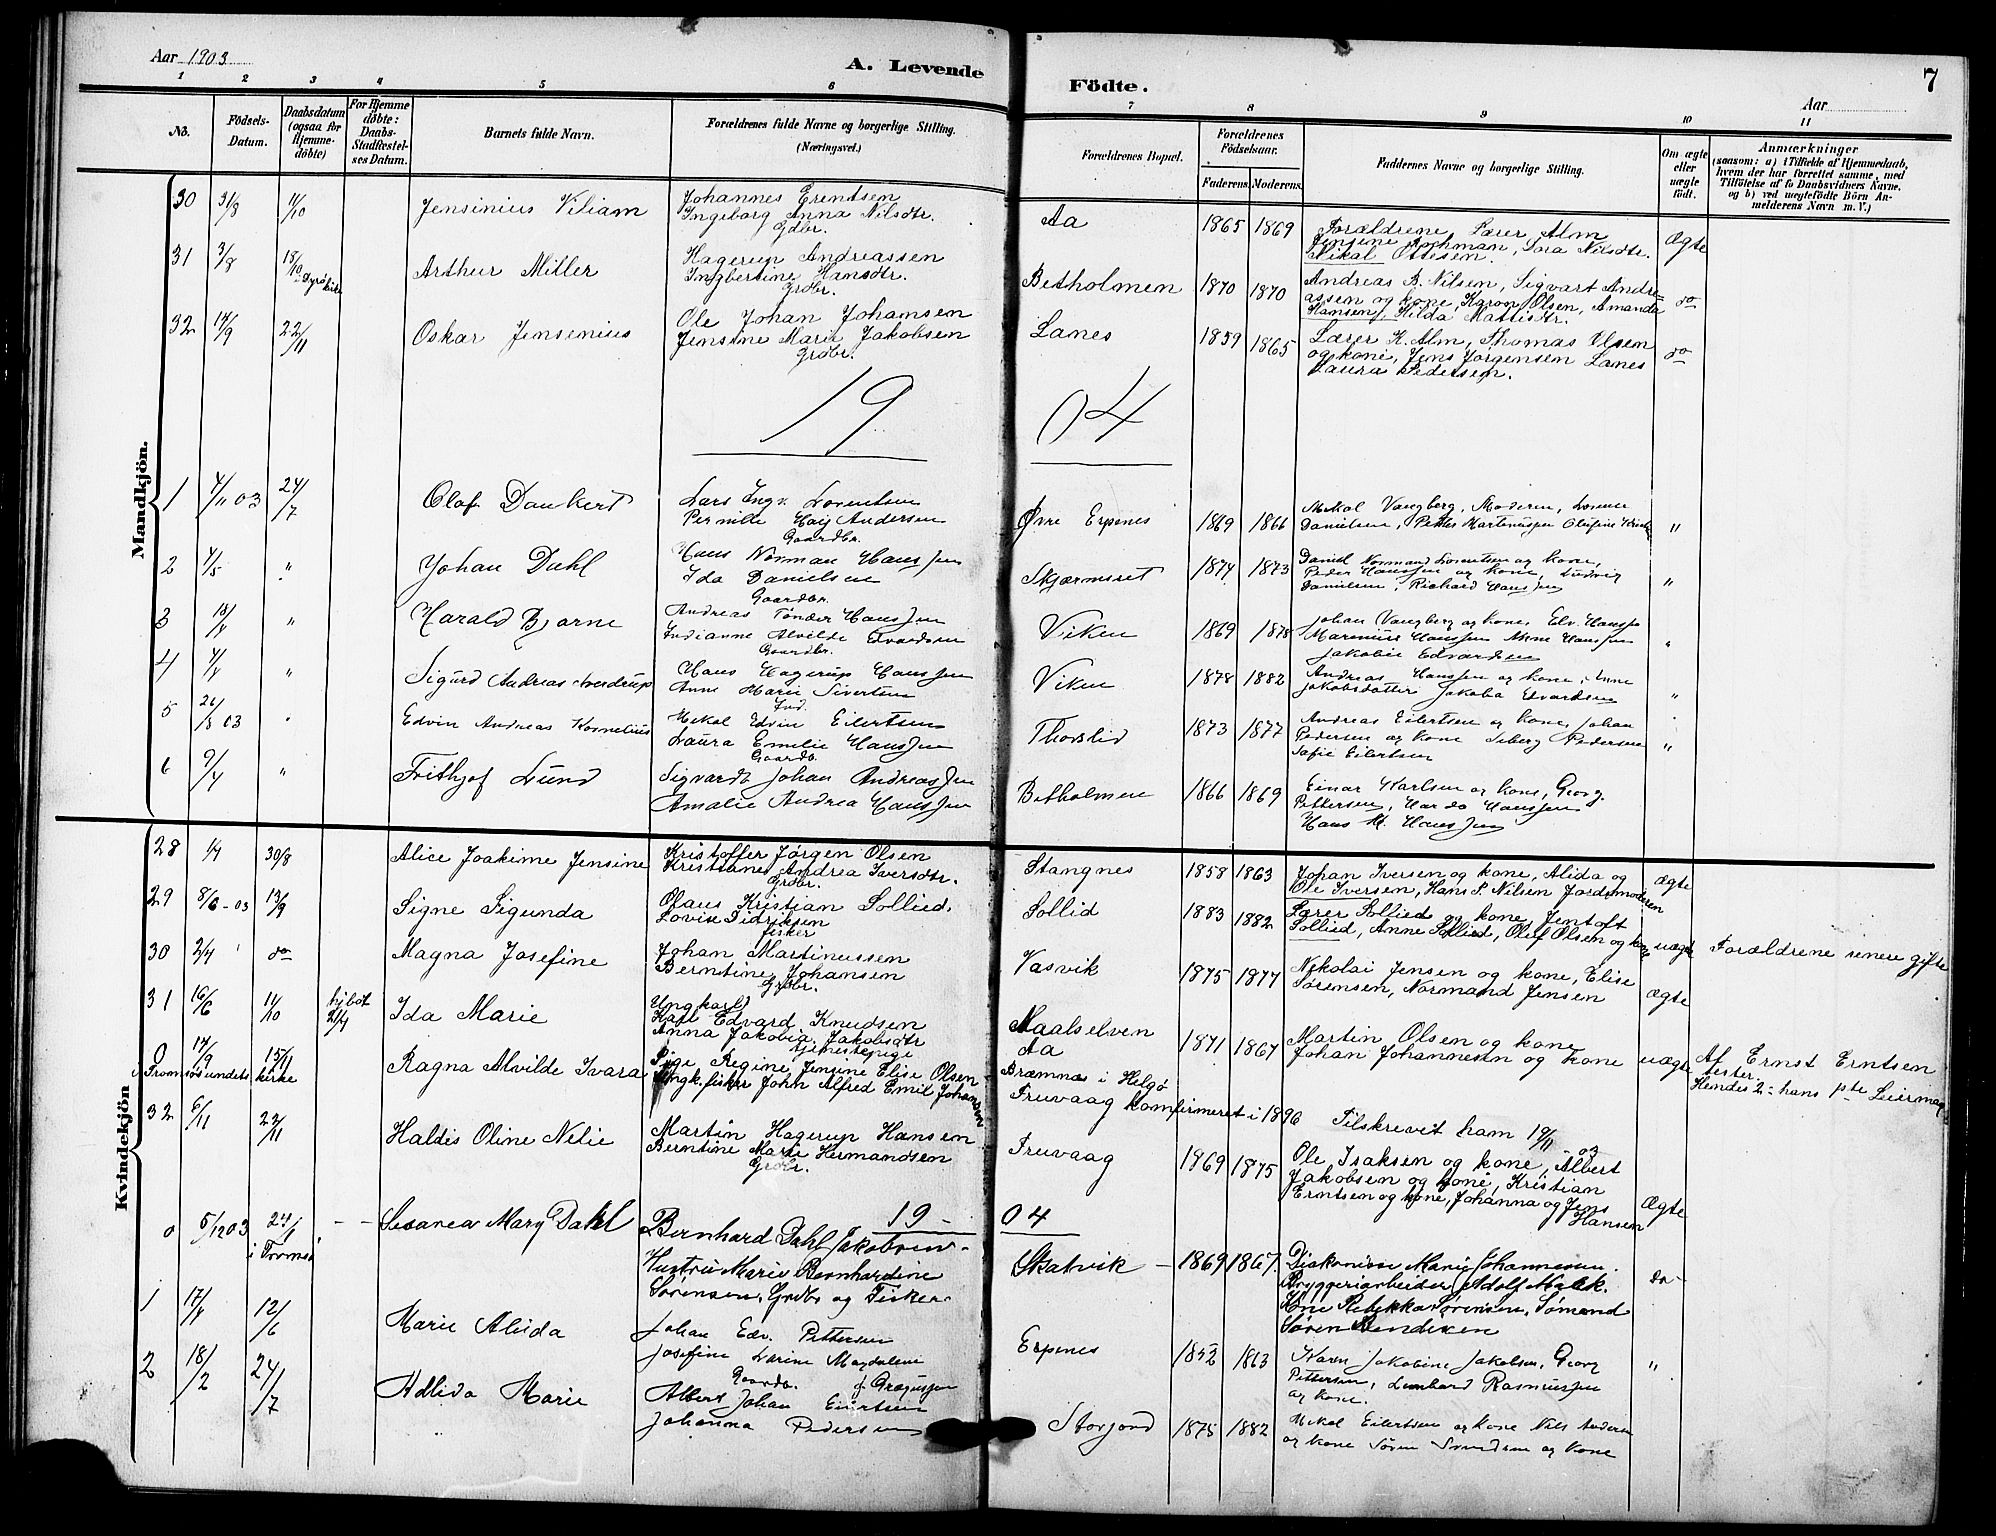 Aar 1903
A. Levende
Födte.
Aar
7
1 2 3 4 5 6 7 8 9 10 11
No.
Födsels-Datum.
Daabsdatum (ogsaa for Hjemme-döbte)
For Hjemme döbte: Daabs-Stadfæstel-ses Datum.
Barnets fulde Navn.
Forældrenes fulde Navne og borgerlige Stilling.
(Næringsvei.)
Forældrenes Bopæl.
Forældrenes Födselsaar.
Faderens. Moderens.
Faddernes Navne og borgerlige Stilling.
Om ægte eller uægte födt.
Anmærkninger
(saasom: a) i Tilfælde af Hjemmedaab, hvem der har forrettet samme, med Tilföielse af to Daabsvidners Navne, og b) ved uægtefödte Börn An-melderens Navn m. V.)
Mandkjön.
30 31/8 11/10 Jensinius Viliam
Johannes Erentsen
Ingeborg Anna Nilsdtr.
Gdbr.
Aa 1865 1869
Forældrene Lærer Alm
Jensine Hochman, Sara Nilsdtr.
Mikal Ottesen.
Ægte
31 3/8 18/10 Dyrö kirke Arthur Miller
Hagerup Andreassen
Ingbertine Hansdtr.
Grdbr.
Betholmen 1870 1870
Andreas B. Nilsen, Sigvart Andre=
assen og kone, Karen Olsen, Amanda
Hansen, Hilda Mattisdtr.
do
32 14/9 22/11 Oskar Jensenius
Ole Johan Johansen
Jensine Marie Jakobsen
Grdbr.
Lanes 1859 1865
Lærer K. Alm, Thomas Olsen
og kone, Jens Jørgensen Lanes
Laura Pedersen.
do
19 04
1 4/11 03 24/7 Olaf Dankert
Lars Ingv. Lorentsen
Pernille Haij Andersen
Gaardbr.
Øvre Erpenes 1869 1866
Mikal Vangberg, Moderen, Lorence
Danielsen, Petter Martinussen Olufine
"
2 4/5 " Johan Dahl
Hans Norman Hanssen
Ida Danielsen
Gaardbr.
Skjærmeset 1874 1873
Daniel Normand Lorentsen og kone,
Peder Hanssen og kone, Ludvig
Danielsen, Richard Hanssen
"
3 18/4 " Harald Bjarne
Andreas Tønder Hanssen
Indianne Alvilde Edvardsen
Gaardbr.
Viken 1869 1878
Johan Vangberg og kone, Elv. Hanss
Marenius Hanssen Hanssen
Jakobie Edvardsen
"
4 4/4 " Sigurd Andreas Sverdrup
Hans Hagerup Hanssen
Anne Marie Sivertsen
Ind.
Viken 1878 1882
Andreas Hanssen og kone, Anne
Jakobsdatter Jakoba Edvardsen
"
5 26/3 03 " Edvin Andreas Kornelius
Mikal Edvin Eilertsen
Laura Emelie Hanssen
Gaardb.
Thorslid 1873 1877
Andreas Eilertsen og kone, Johan
Pedersen og kone Seberg Pedersen
Sofie Eilertsen
"
6 9/4 " Frithjof Lund
Sigvardt Johan Andreassen
Amalie Andrea Hanssen
Betholmen 1866 1869
Einar Karlsen og kone, Georg.
Pettersen, Hanssen
Hans M. Hanssen
Kvindekjön
28 1/4 30/8 Alice Joakime Jensine
Kristoffer Jørgen Olsen
Kristiane Andrea Iversdtr.
Grdbr.
Stangnes 1858 1863
Johan Iversen og kone, Alida og
Ole Iversen, Hans P. Nilsen Jordemoderen
ægte
29 8/6 - 03 13/9 Signe Sigunda
Olaus Kristian Sollied.
Lovise Didriksen
fisker
Sollid 1883 1882
Lærer Sollied og kone, Jentoft
Sollied, Anne Sollied, Oluf Olsen og kone
uægte
Forældrene senere gifte
30 2/4 do Magna Josefine
Johan Martinussen
Berntine Johansen
Grdbr.
Vasvik 1875 1877
Nikolai Jensen og kone, Elise
Sørensen, Normand Jensen
ægte
31 16/6 11/10 hjdøt 21/4 Ida Marie
Ungkarl
Karl Edvard Knudsen
Anna Jakobia Jakobsdtr
tjenestepige
Maalselven
Aa 1871 1867
Martin Olsen og kone
Johan Johannesen og kone
uægte
Af Ernst Erntsen
tester
Hendes 2 = hans 1ste Leiermaal
0 14/9 15/11 Tromsøsundets kirke Ragna Alvilde Ivara
Pige Regine Jensine Elise Olsen
Ungk. fisker John Alfred Emil Johansen
Bræmnæs i Helgö
Truvaag konfirmeret i 1896 Tilskrevet ham 19/11 - 03
32 6/11 22/11 Haldis Oline Nelie
Martin Hagerup Hansen
Berntine Marie Hermandsen
Grdbr.
Truvaag 1869 1875
Ole Isaksen og kone, Albert
Jakobsen og kone, Kristian
Erntsen og kone, Johanna og Jens
Hansen
Ægte
19 - 04
0 5/12 03 24/1 i Tromsø - - Sesanea Mary Dahl
Bernhard Dahl Jakobsen -
Hustru Marie Bernhardine
Sørensen, Grdbr og Fisker -
Skatvik - 1869 1867.
Diakonisse Marie Johannesen.
Bryggeriarbeider Adolf
Kone Rebekka Sørensen, Sømand
Søren Bendiksen
do -
1 17/4 12/6 Marie Alida
Johan Edv. Pettersen
Josefine Larine Magdalene
Gaardb. f. Gregussen
Erpenes 1852 1863
Karen Jakobine Jakobsen, Georg
Pettersen, Leonhard Rasmussen
og kone.
"
2 18/2 24/7 Adlida Marie
Albert Johan Eilertsen
Johanna Pedersen
Storjord 1875 1882
Mikal Eilertsen og kone Nils Andersen
og kone Søren og kone